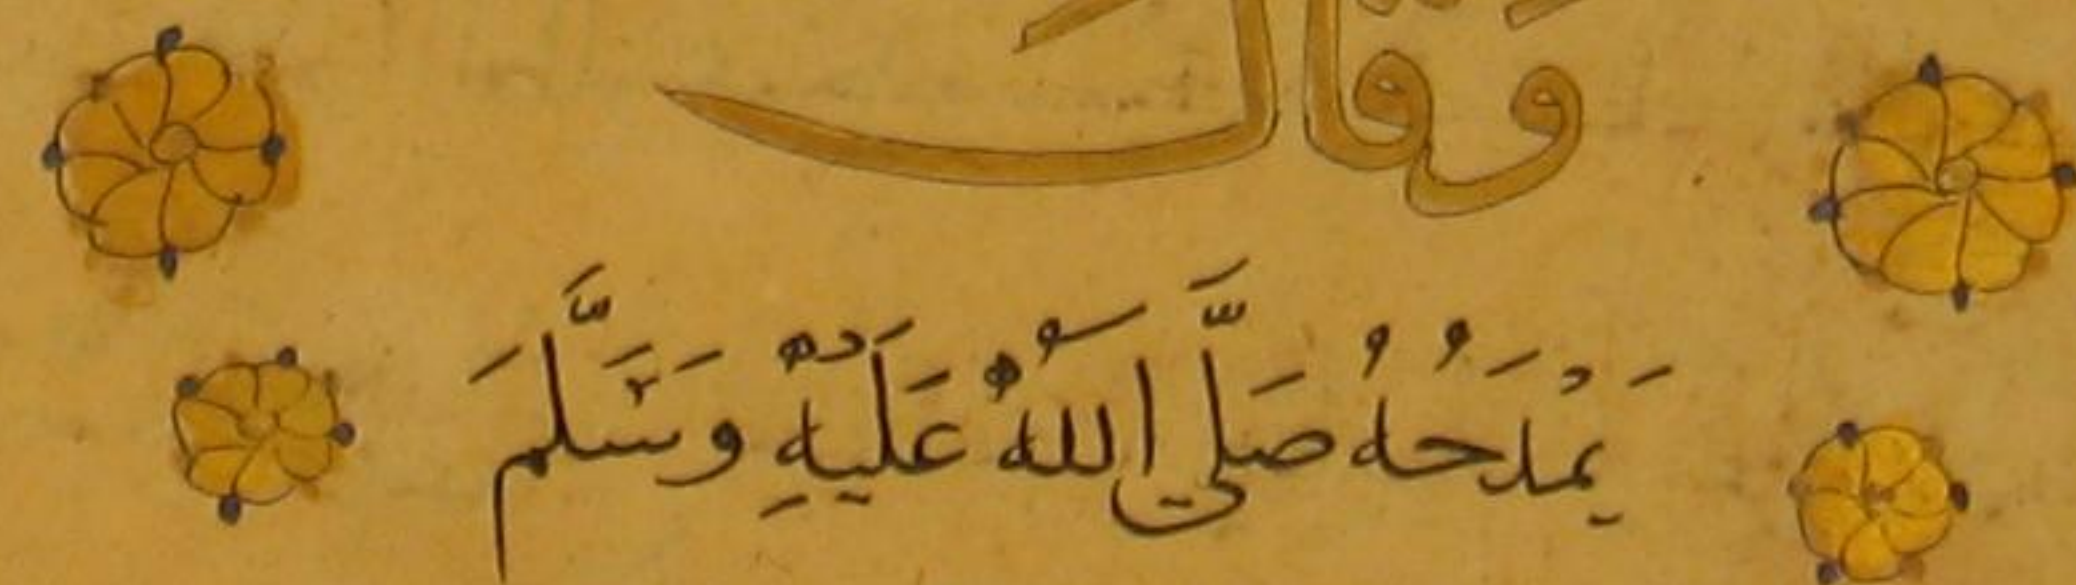 وَقَالَ
يَمْدَحُهُ صَلَّى اللهُ عَلَيْهِ وَسَلَّمَ